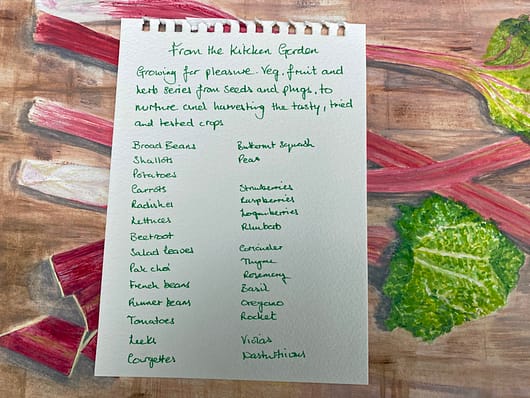 From the Kitchen Garden
Growing for pleasure. Veg, fruit and
herb series from seeds and plugs, to
nurture and harvesting the tasty, tried
and tested crops
Broad Beans
Shallots
Potatoes
Carrots
Radishes
Lettuces
Beetroot
Salad leaves
Pak choi
French beans
Runner beans
Tomatoes
Leeks
Courgettes
Butternut Squash
Peas
Strawberries
Raspberries
Loganberries
Rhubarb
Coriander
Thyme
Rosemary
Basil
Oregano
Rocket
Violas
Nasturtiums